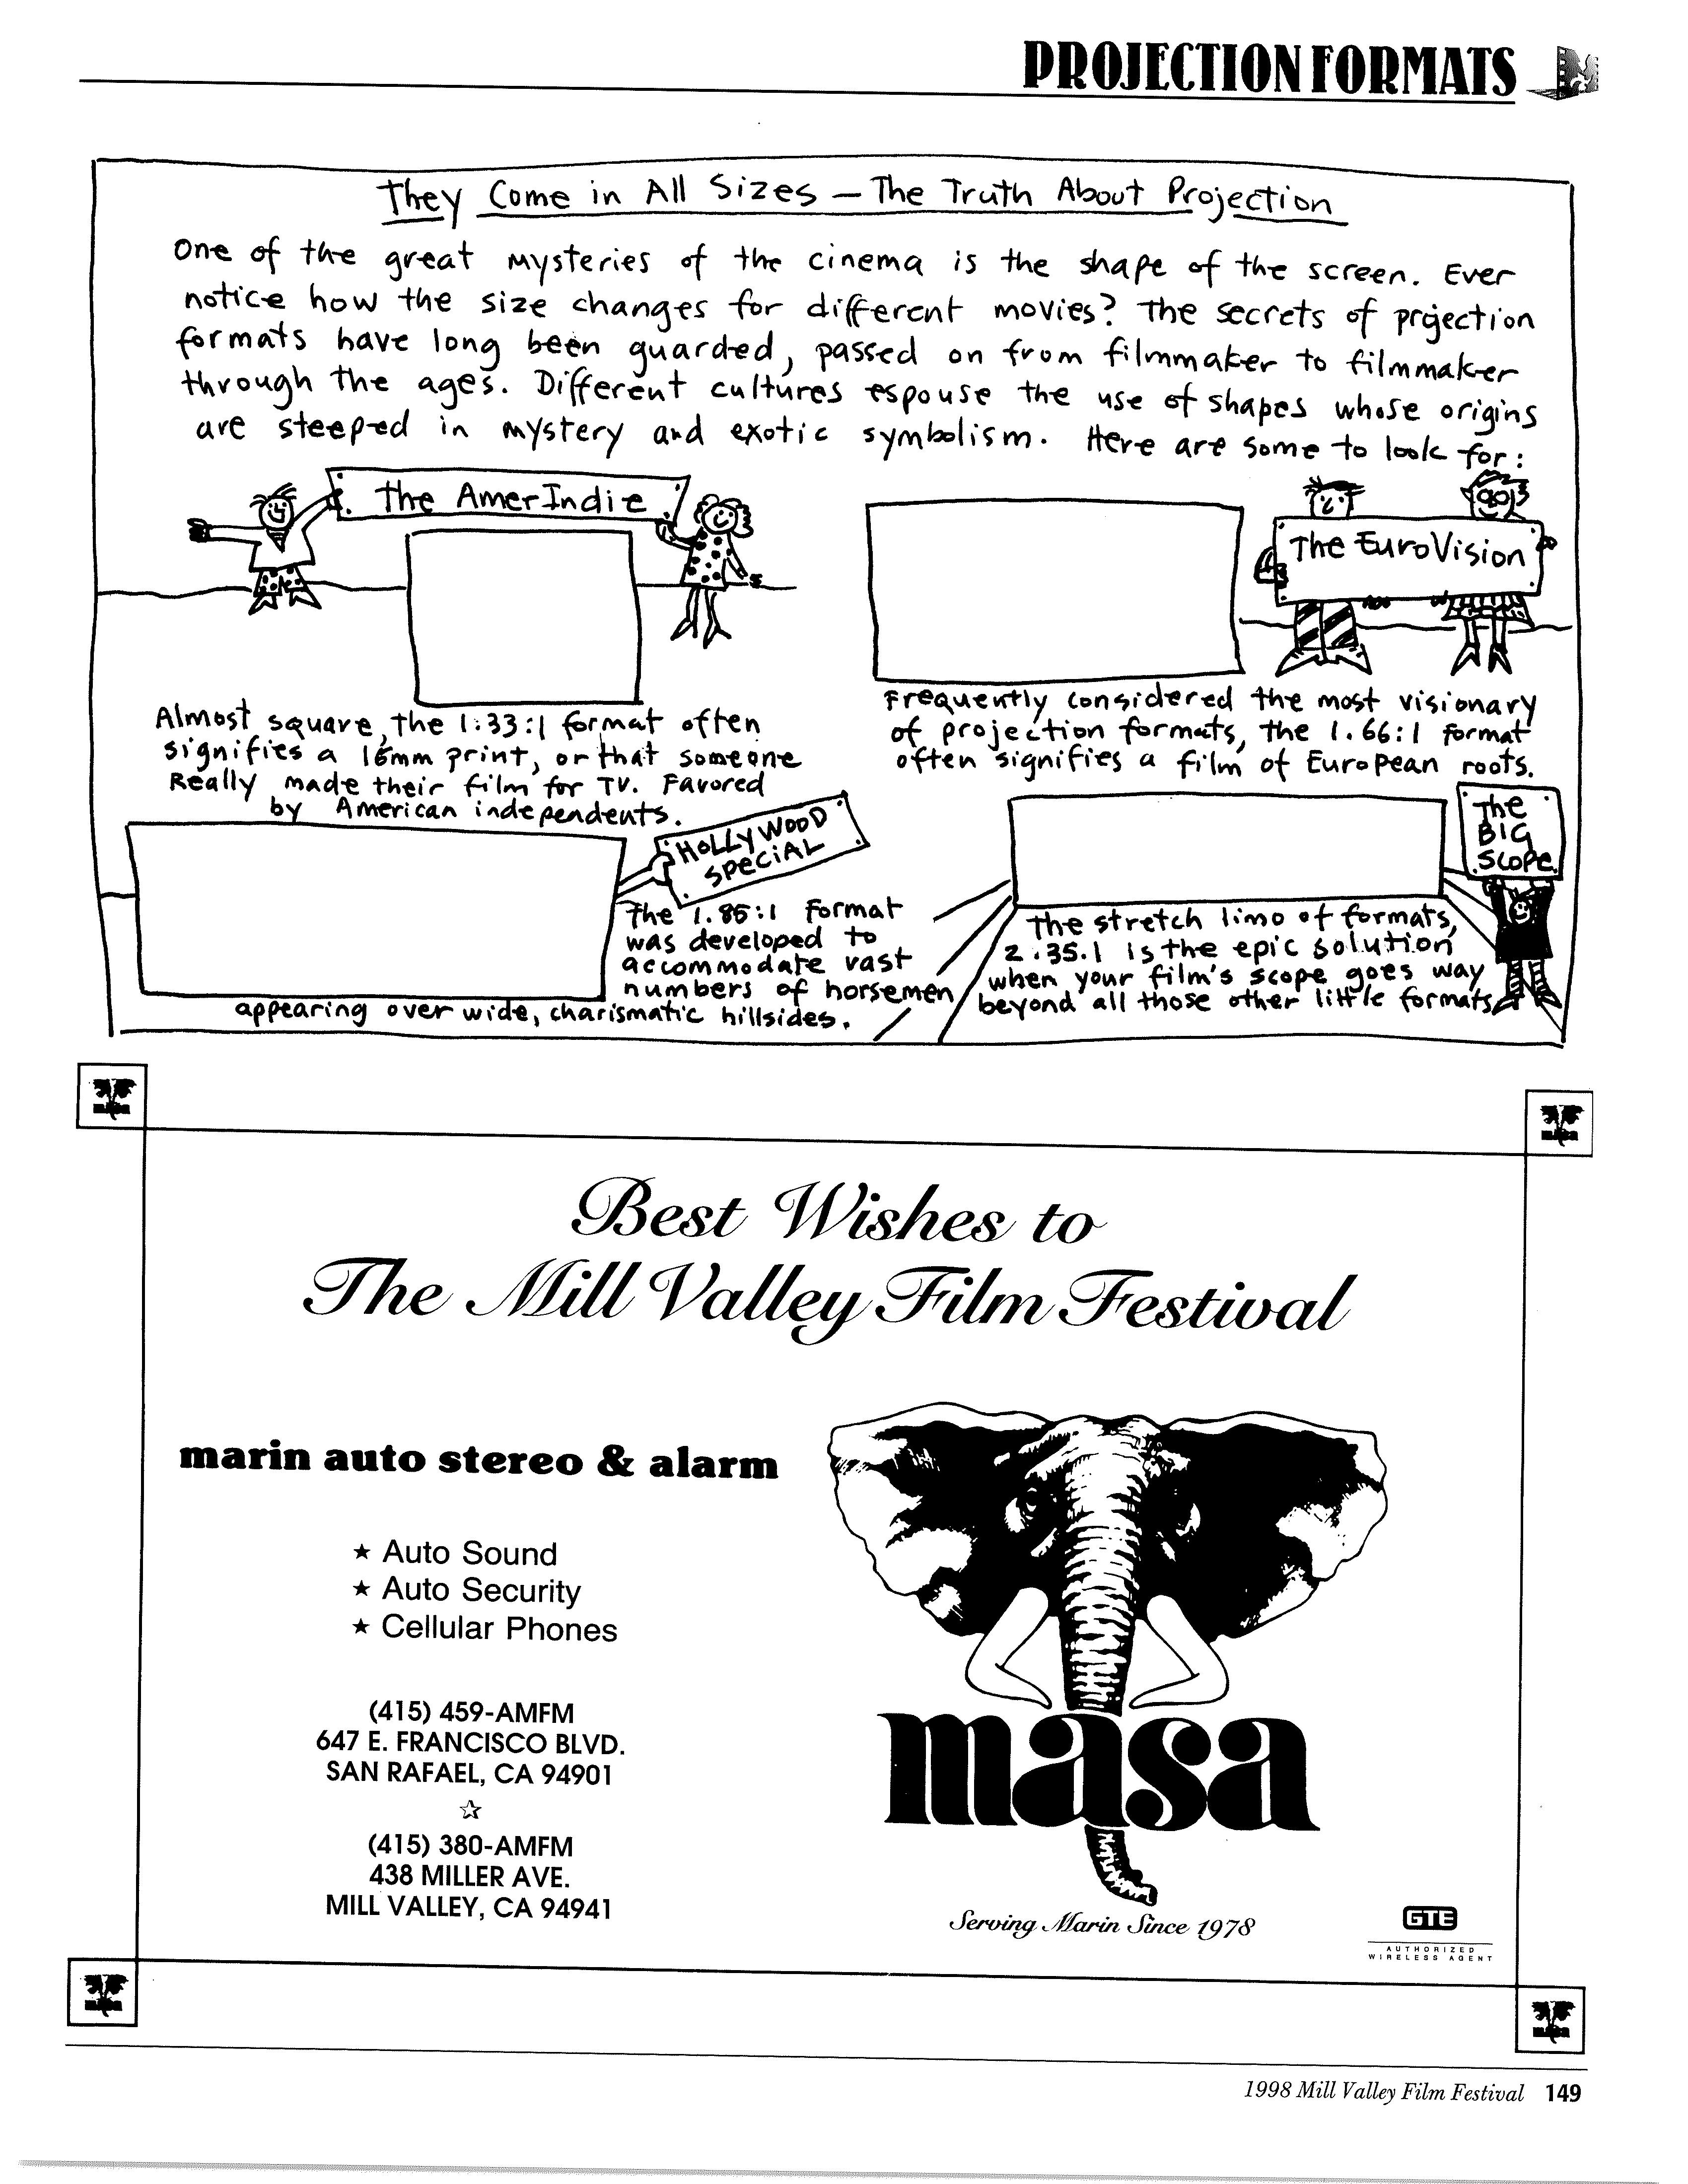 PROJECTION FORMATS
They Come in All Sizes — The Truth About Projection
One of the great mysteries of the cinema is the shape of the screen. Ever
notice how the size changes for different movies? The secrets of projection
formats have long been guarded, passed on from filmmaker to filmmaker
through the ages. Different cultures espouse the use of shapes whose origins
are steeped in mystery and exotic symbolism. Here are some to look for:
The AmerIndie
Almost square, the 1:33:1 format often
signifies a 16mm print, or that someone
Really made their film for TV. Favored
by American independents.
The EuroVision
Frequently considered the most visionary
of projection formats, the 1.66:1 format
often signifies a film of European roots.
HOLLYWOOD
SPECiAL
The 1.85:1 format
was developed to
accommodate vast
numbers of horsemen
appearing over wide, charismatic hillsides.
The
BIG
Scope
The stretch limo of formats,
2.35.1 is the epic solution
when your film's scope goes way
beyond all those other little formats
masa
masa
Best Wishes to
The Mill Valley Film Festival
marin auto stereo & alarm
★ Auto Sound
★ Auto Security
★ Cellular Phones
(415) 459-AMFM
647 E. FRANCISCO BLVD.
SAN RAFAEL, CA 94901
☆
(415) 380-AMFM
438 MILLER AVE.
MILL VALLEY, CA 94941
masa
Serving Marin Since 1978
GTE
AUTHORIZED
WIRELESS AGENT
masa
masa
1998 Mill Valley Film Festival 149